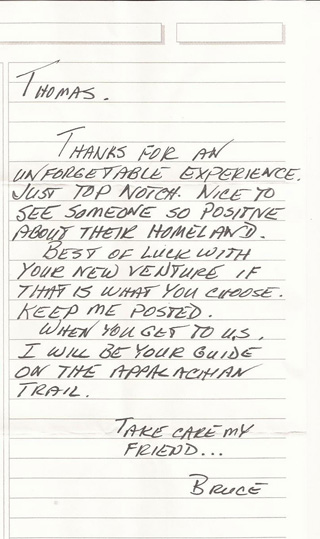 THOMAS.
THANKS FOR AN
UNFORGETABLE EXPERIENCE.
JUST TOP NOTCH. NICE TO
SEE SOMEONE SO POSITIVE
ABOUT THEIR HOMELAND.
BEST OF LUCK WITH
YOUR NEW VENTURE IF
THAT IS WHAT YOU CHOOSE.
KEEP ME POSTED.
WHEN YOU GET TO U.S.
I WILL BE YOUR GUIDE
ON THE APPALACHIAN
TRAIL.
TAKE CARE MY
FRIEND...
BRUCE